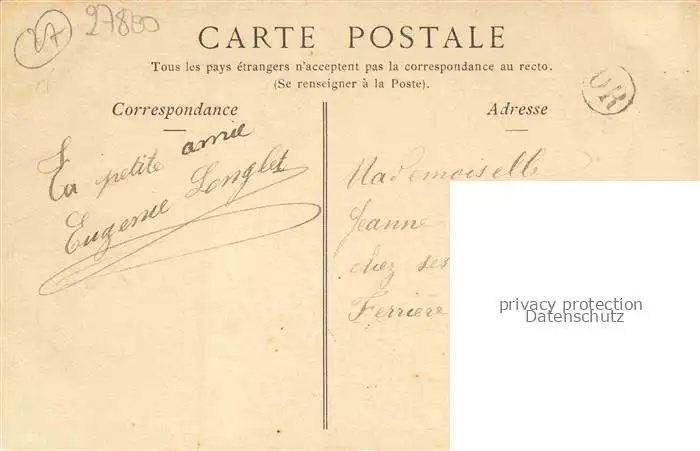 27
27800
CARTE POSTALE
Tous les pays étrangers n'acceptent pas la correspondance au recto.
(Se renseigner à la Poste).
Correspondance
Adresse
OR
Ta petite amie
Eugenie Longlet
Mademoiselle
Jeanne
chez ses
Ferrière
privacy protection
Datenschutz